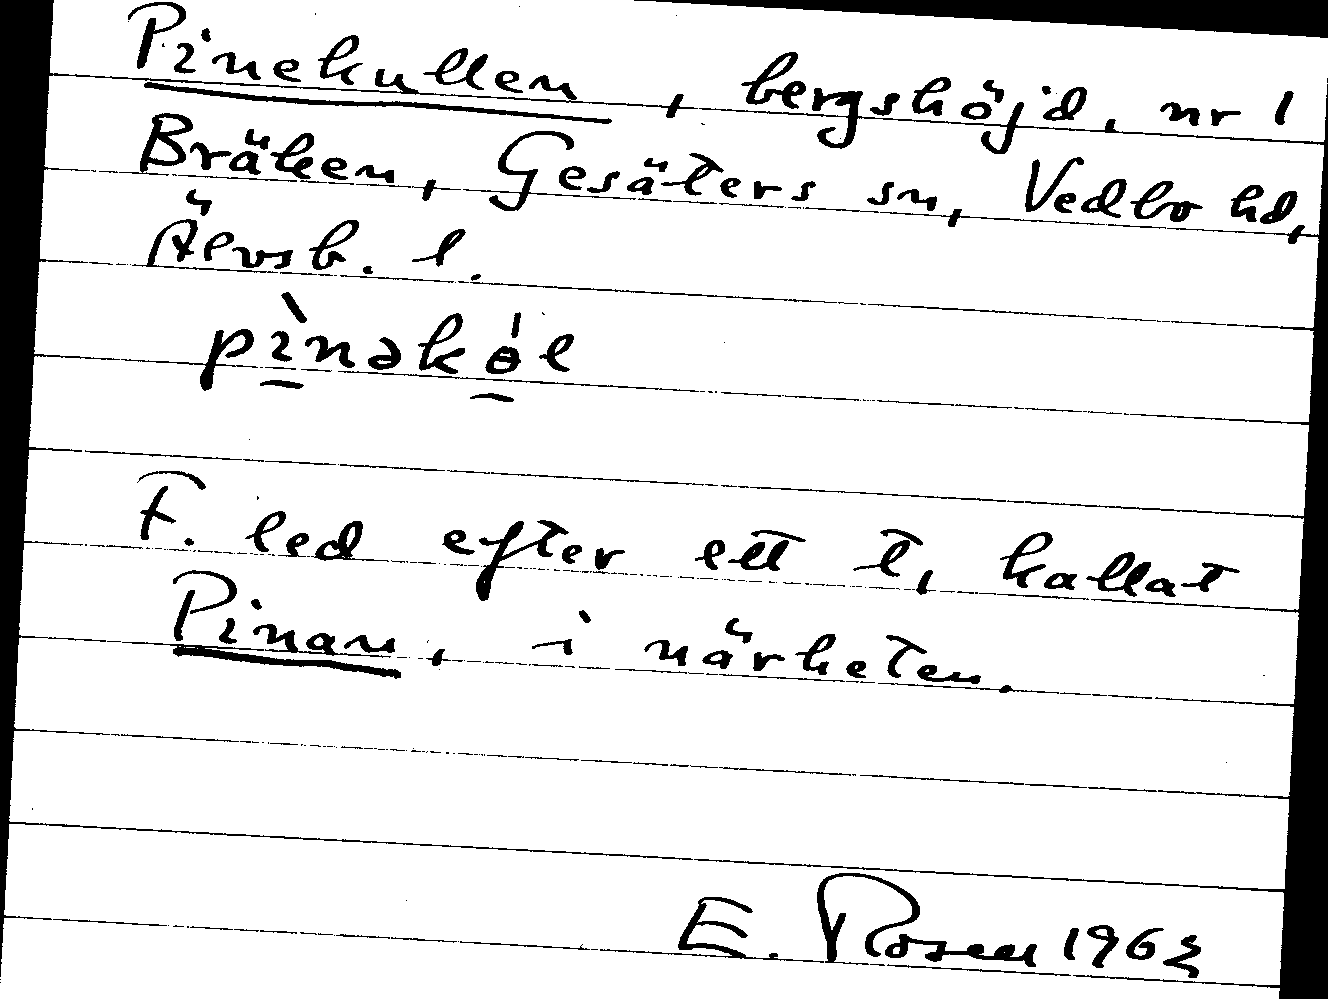 Pinekullen, bergshöjd, nr 1
Bräken, Gesäters sn, Vedbo hd,
Älvsb. l.
pìnəkɵ̍l
F. led efter ett t, kallat
Pinan, i närheten.
E. Rosen 1963